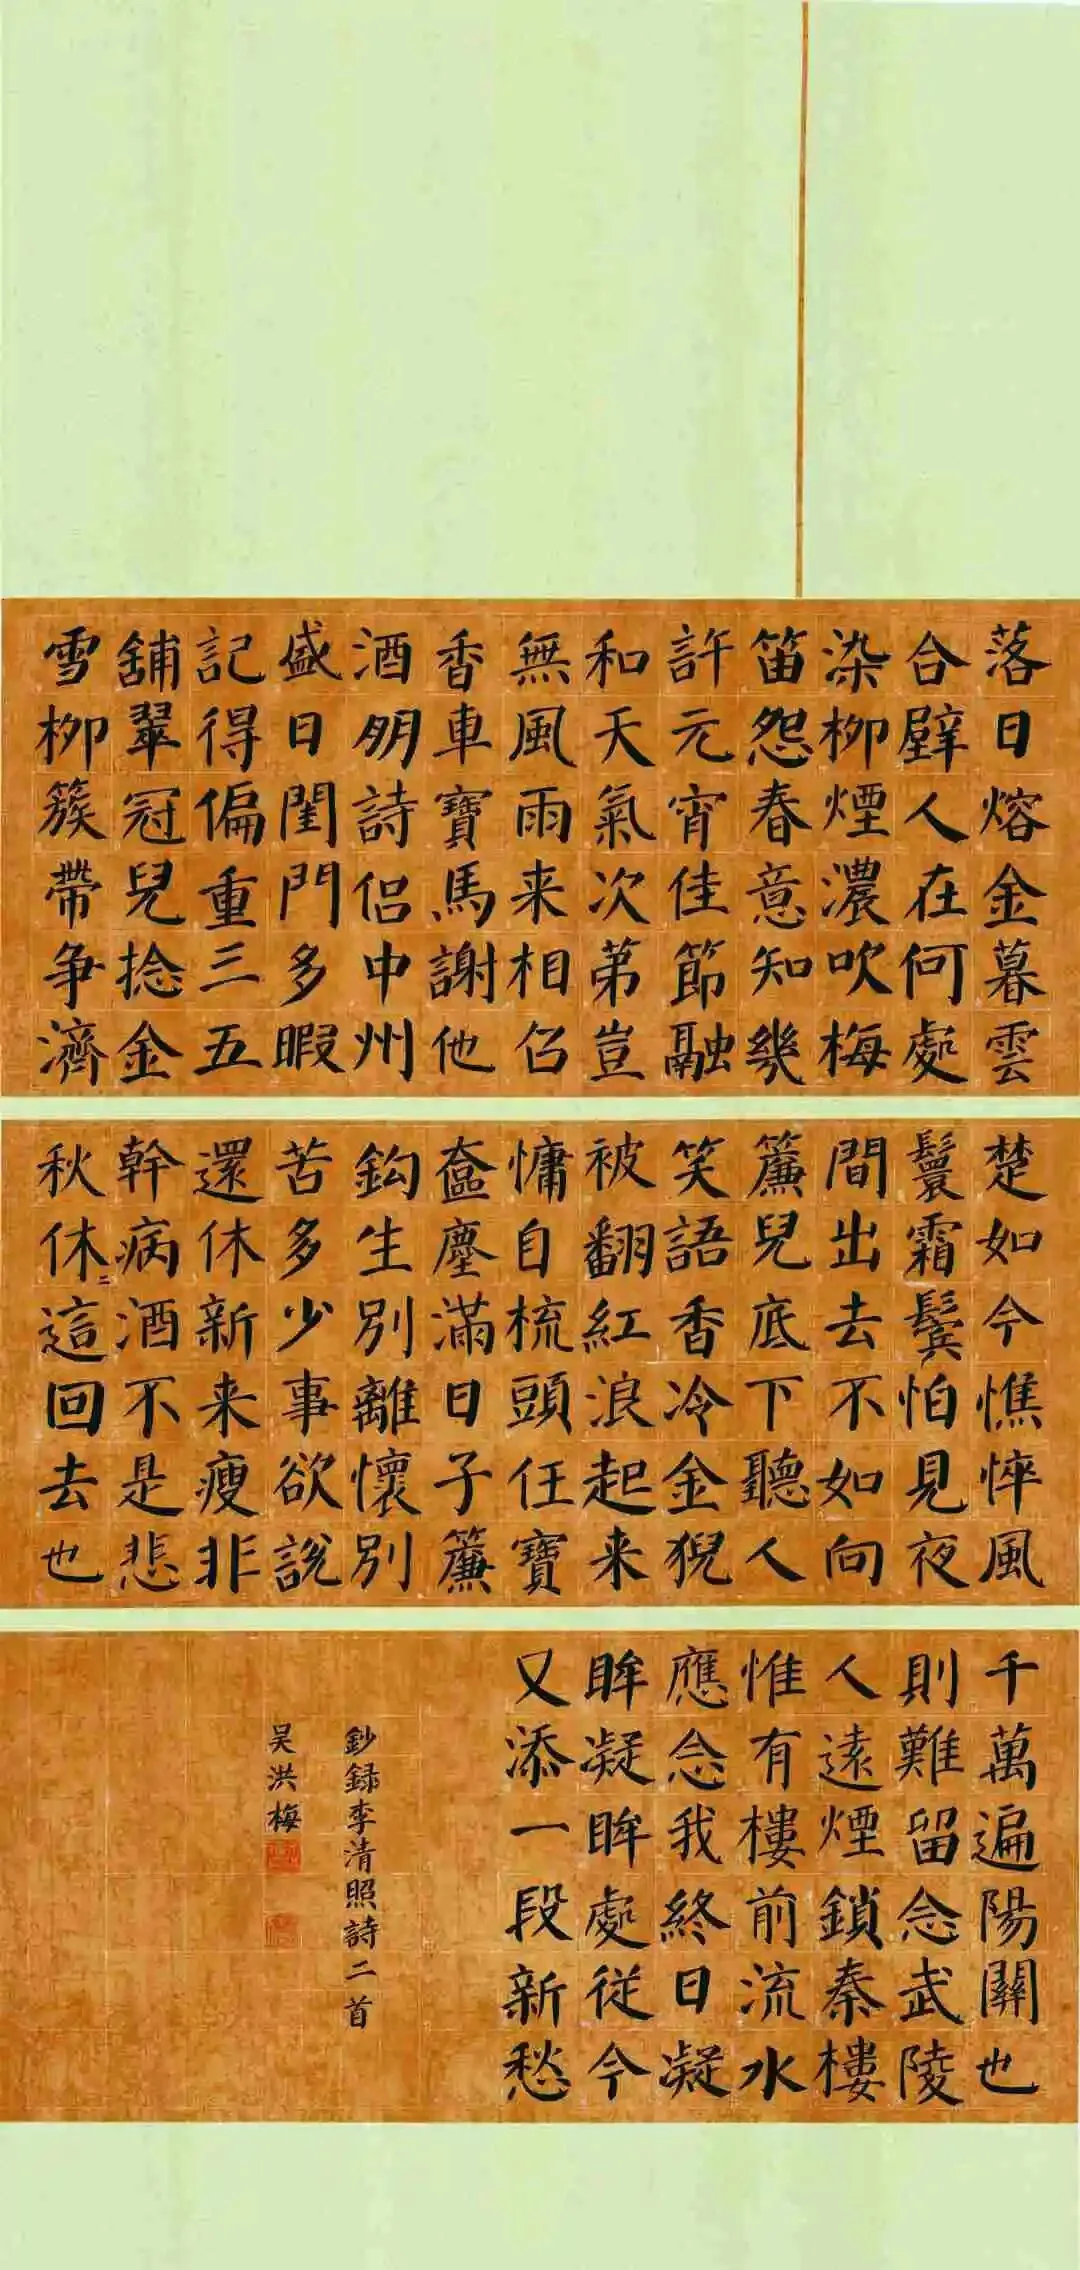 落日熔金暮雲
合壁人在何處
染柳煙濃吹梅
笛怨春意知幾
許元宵佳節融
和天氣次第豈
無風雨来相召
香車寶馬謝他
酒朋詩侣中州
盛日閨門多暇
記得偏重三五
舖翠冠兒捻金
雪柳簇帶争濟
楚如今憔悴風
鬟霜鬢怕見夜
間出去不如向
簾兒底下聽人
笑語香冷金猊
被翻紅浪起来
慵自梳頭任寶
奩塵滿日子簾
鈎生别離懷别
苦多少事欲説
還休新来瘦非
幹病酒不是悲
秋休二這回去也
千萬遍陽關也
則難留念武陵
人遠煙鎖秦樓
惟有樓前流水
應念我終日凝
眸凝眸處從今
又添一段新愁
鈔録李清照詩二首
吴洪梅